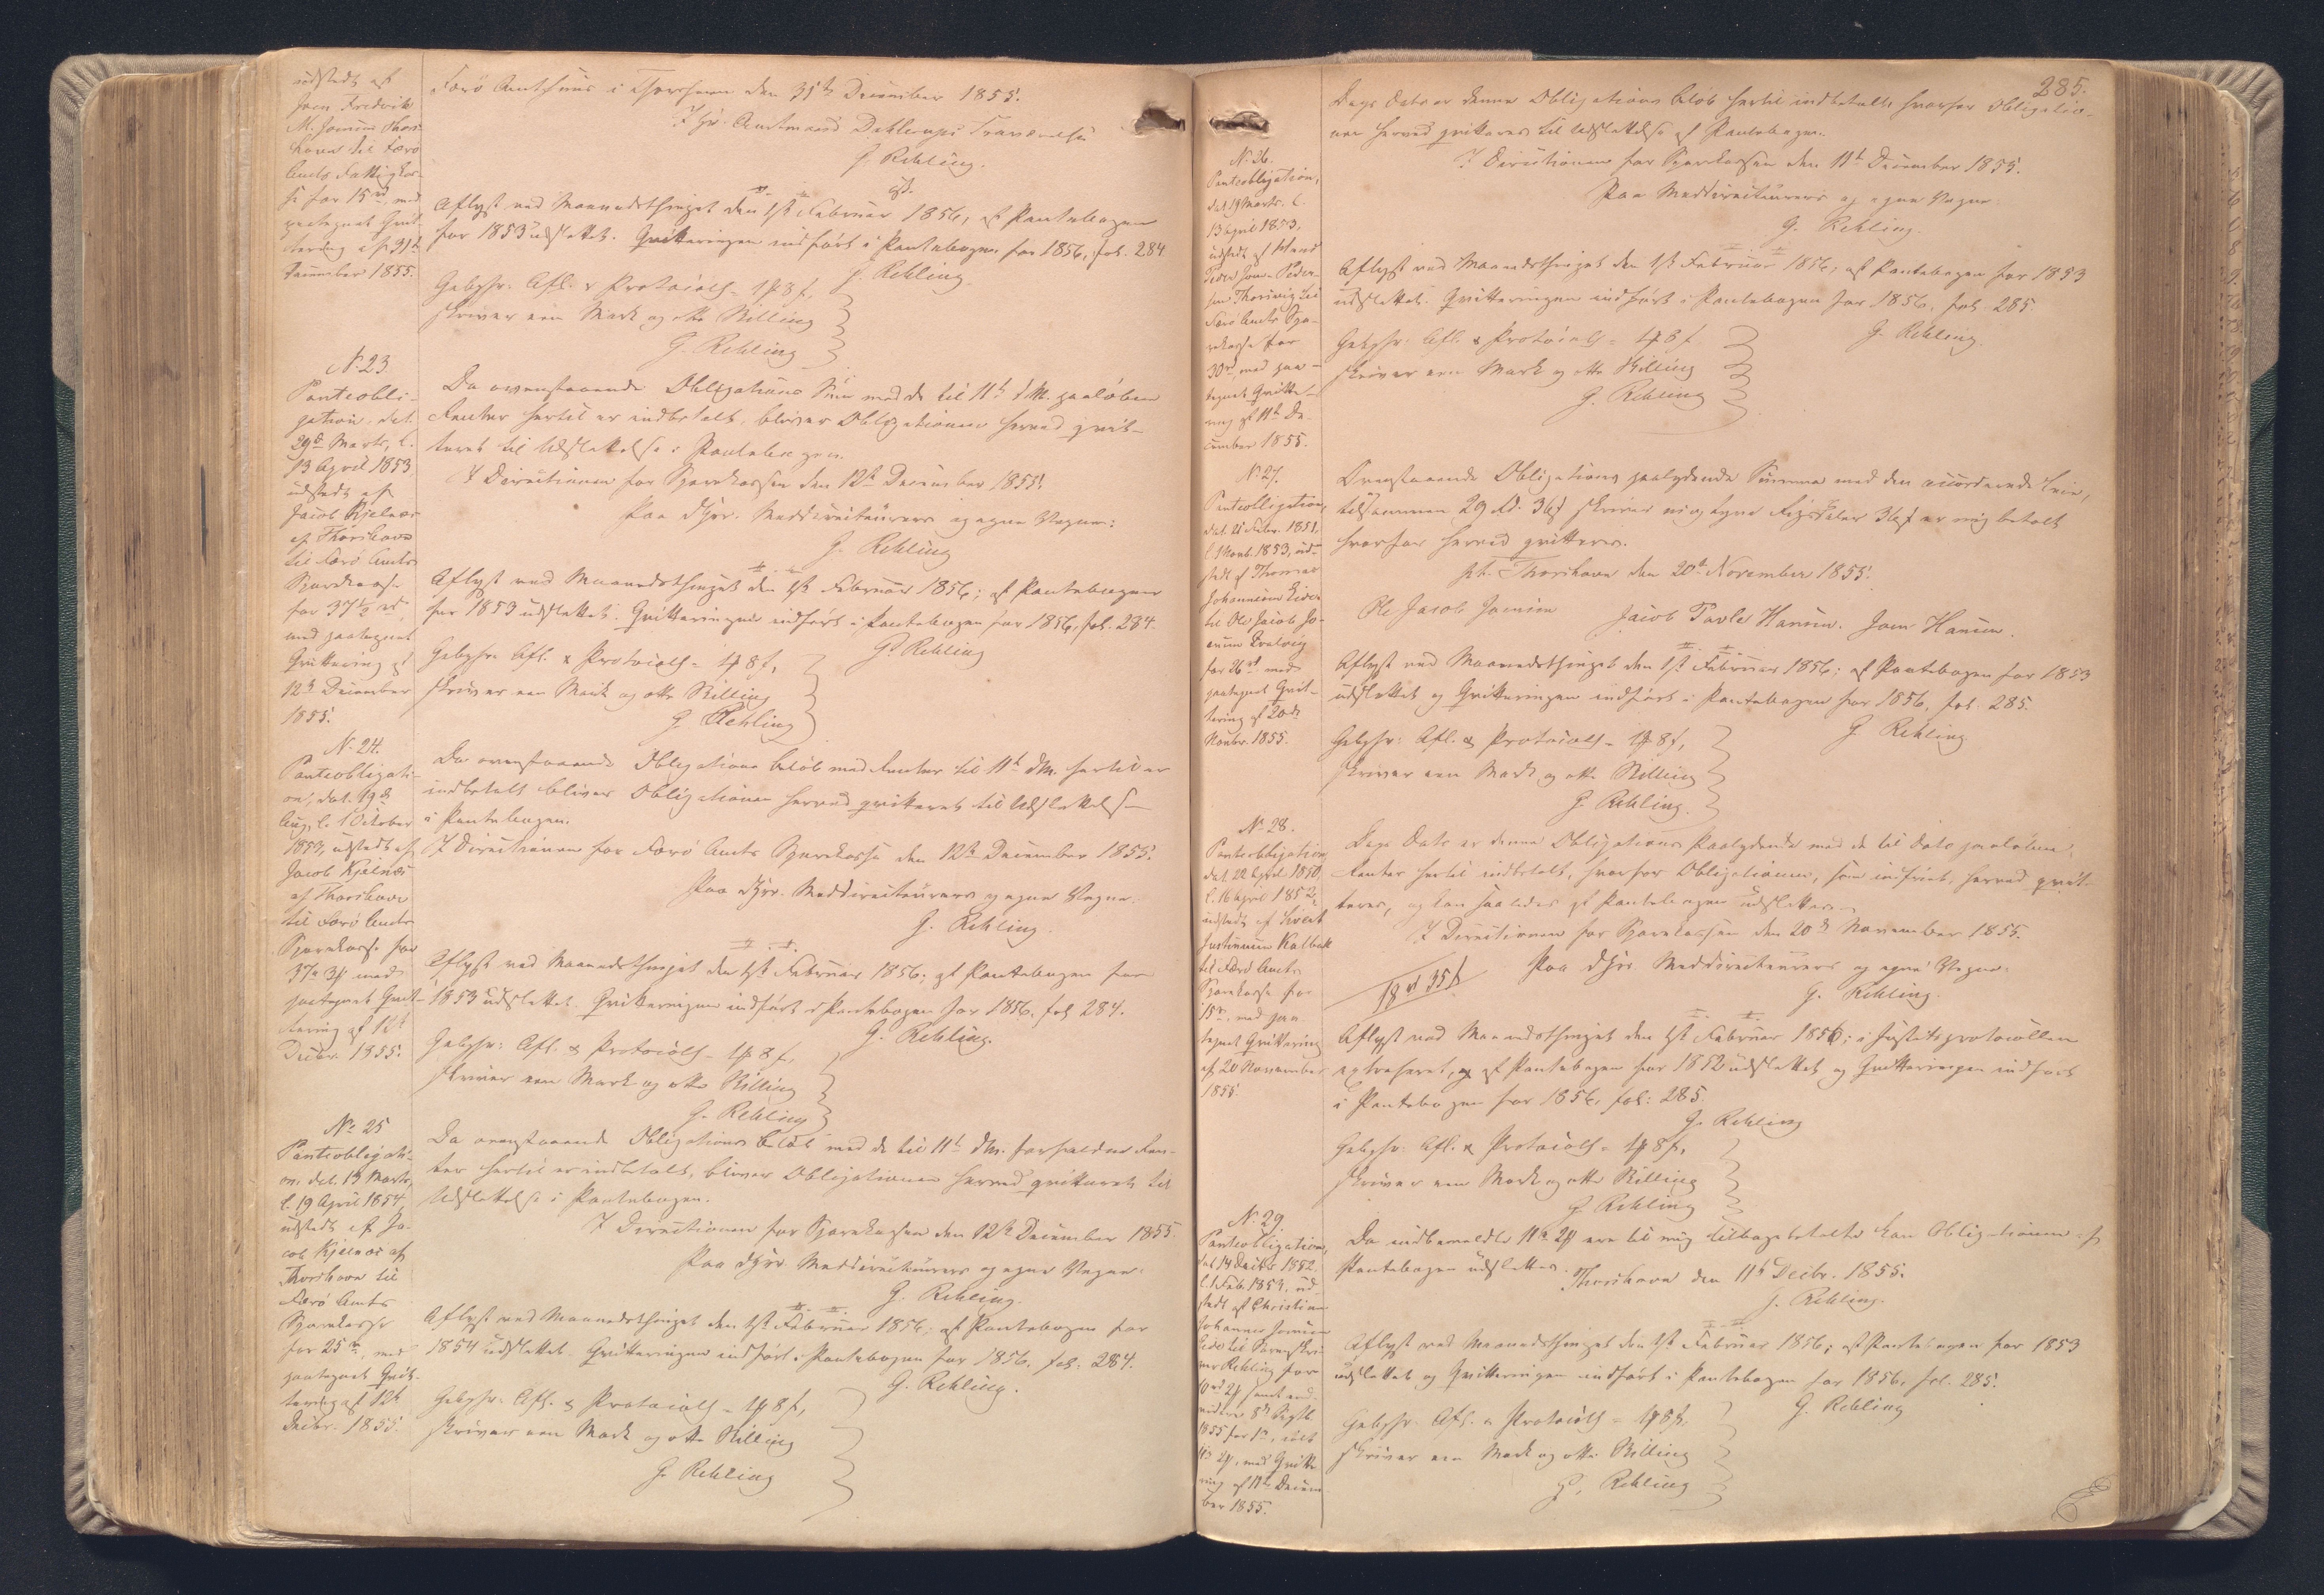 udstedt af
Joen Fredrik
M. Joensens Thors-
havn til Færø
Amts Fattigkas-
se for 15 rd, med
paategnet Qvit-
tering af 31te
December 1855.
Færø Amthuus i Thorshavn den 31te December 1855.
I Hr. Amtmand Dahlerups Fraværelse
G. Rehling.
cst.
Aflyst ved Maanedsthinget den 1ste Februar 1856, af Pantebogen
for 1853 udslettet. Qvitteringen indført i Pantebogen for 1856, fol. 284
G. Rehling.
Gebyhr: Afl. & Protocoll = 1 # 8 f,
skriver een Mark og otte Skilling
G. Rehling
No 23
Panteobli-
gation, dat.
29de Marts, l.
13 April 1853,
udstedt af
Jacob Kjelnæs
af Thorshavn
til Færø Amts
Sparekasse
for 37½ rd,
med paategnet
Qvittering af
12te December
1855.
Da ovenstaaende Obligations Sum med de til 11te d. M. paaløbne
Renter hertil er indbetalt, bliver Obligationen herved qvit-
teret til Udslettelse i Pantebogen.
I Directionen for Sparekassen den 12te December 1855.
Paa dHrr. Meddirecteurers og egne Vegne:
G. Rehling
Aflyst ved Maanedsthinget den 1ste Februar 1856; af Pantebogen
for 1853 udslettet. Qvitteringen indført i Pantebogen for 1856, fol. 284.
G. Rehling
Gebyhr: Afl. & Protocoll = 1 # 8 f,
skriver een Mark og otte Skilling
G. Rehling
No 24.
Panteobligati-
on, dat. 19de
Aug, l. 1 October
1853, udstedt af
Jacob Kjelnæs
af Thorshavn
til Færø Amts
Sparekasse for
37 rd 3 # med
paategnet Qvit-
tering af 12te
Decbr. 1855.
Da ovenstaaende Obligations Beløb med Renter til 11te dM. hertil er
indbetalt bliver Obligationen herved qvitteret til Udslettelse
i Pantebogen.
I Directionen for Færø Amts Sparekasse den 12te December 1855.
Paa dHrr. Meddirecteurers og egne Vegne.
G. Rehling.
Aflyst ved Maanedsthinget den 1ste Februar 1856; af Pantebogen for
1853 udslettet. Qvitteringen indført i Pantebogen for 1856, fol 284.
G. Rehling.
Gebyhr: Afl. & Protocoll - 1 # 8 f,
skriver een Mark og otte Skilling
G. Rehling
No 25
Panteobligati-
on, dat. 13 Marts,
l. 19 April 1854,
udstedt af Ja-
cob Kjelnæs af
Thorshavn til
Færø Amts
Sparekasse
for 25 rd, med
paategnet Qvit-
tering af 12te
Decbr. 1855.
Da ovenstaaende Obligations Beløb med de til 11te dM. forfaldne Ren-
ter hertil er indbetalt, bliver Obligationen herved qvitteret til
Udslettelse i Pantebogen.
I Directionen for Sparekassen den 12te December 1855.
Paa dHrr. Meddirecteurers og egne Vegne.
G. Rehling.
Aflyst ved Maanedsthinget den 1ste Februar 1856; af Pantebogen for
1854 udslettet. Qvitteringen indført i Pantebogen for 1856. fol: 284.
G. Rehling.
Gebyhr: Afl. & Protocoll - 1 # 8 f,
skriver een Mark og otte Skilling
G. Rehling
285.
Dags Dato er denne Obligations Beløb hertil indbetalt hvorfor Obligatio-
nen herved qvitteres til Udslettelse af Pantebogen.
I Directionen for Sparekassen den 11te December 1855.
Paa Meddirecteurers og egne Vegne
G. Rehling.
No 26.
Panteobligation,
dat 19 Marts. l.
13 April 1853,
udstedt af
Peder Joen Peder-
sen Thorsvig til
Færø Amts Spa-
rekasse for
30 rd, med paa-
tegnet Qvitte-
ring af 11te De-
cember 1855.
Aflyst ved Maanedsthinget den 1ste Februar 1856, af Pantebogen for 1853
udslettet. Qvitteringen indført i Pantebogen for 1856. fol. 285.
G. Rehling.
Gebyhr: Afl. & Protocoll = 1 # 8 f.
skriver een Mark og otte Skilling
G. Rehling
No 27.
Panteobligation,
dat. 21 Febr. 1851,
l. 1 1853, ud-
stedt af Thomas
Johannesen Eide
til Ole Jacob Jo-
ensen
for 26 rd med
paategnet Qvit-
tering af 20de
Novbr. 1855.
Ovenstaaende Obligations paalydende Summa med den accorderede Leie,
tilsammen 29 Rd. 36 f skriver ni og tyve Rigsdaler 36 f er mig betalt
hvorfor herved qvitteres.
pt. Thorshavn den 20de November 1855.
Ole Jacob Joensen Jacob Povle Hansen. Joen Hansen.
Aflyst ved Maanedsthinget den 1ste Februar 1856; af Pantebogen for 1853
udslettet og Qvitteringen indført i Pantebogen for 1856, fol: 285.
G. Rehling
Gebyhr: Afl. & Protocoll - 1 # 8 f,
skriver een Mark og otte Skilling
G. Rehling.
No 28.
Panteobligation
dat. 22 April 1850,
l. 16 April 1852,
udstedt af
Justinusen Kalbak
til Færø Amts
Sparekasse for
15 rd, med paa-
tegnet Qvittering
af 20 November
1855.
Dags Dato er denne Obligations Paalydende med de til Dato paaløbne
Renter hertil indbetalt, hvorfor Obligationen, som indfriet, herved qvit-
teres, og kan saaledes af Pantebogen udslettes.
I Directionen for Sparekassen den 20de November 1855.
18 rd 35 f
Paa dHrr Meddirecteurers og egne Vegne.
G. Rehling.
Aflyst ved Maanedsthinget den 1ste Februar 1856; i Justitsprotocollen
extraheret, og af Pantebogen for 1852 udslettet og Qvitteringen indført
i Pantebogen for 1856, fol: 285.
G. Rehling
Gebyhr: Afl. & Protocoll = 1 # 8 f,
skriver een Mark og otte Skilling
G. Rehling
No 29.
Panteobligation,
dat 14 Decbr 1852,
l. 1 Feb. 1853, ud-
stedt af Christian
Johannes Joensen
Eide til Sorenskri-
ver Rehling for
10 rd 2 # samt
8de Septb.
1855 for 1 rd, ialt
11 rd 2 #, med Qvitte-
ring af 11te Decem-
ber 1855.
Da indbemeldte 11 rd 2 # ere til mig tilbagebetalte kan Obligationen af
Pantebogen udslettes.
Thorshavn den 11te Decbr. 1855.
G. Rehling.
Aflyst ved Maanedsthinget den 1ste Februar 1856; af Pantebogen for 1853
udslettet og Qvitteringen indført i Pantebogen for 1856, fol. 285.
G. Rehling
Gebyhr. Afl. & Protocoll = 1 # 8 f.
skriver een Mark og otte Skilling
G. Rehling